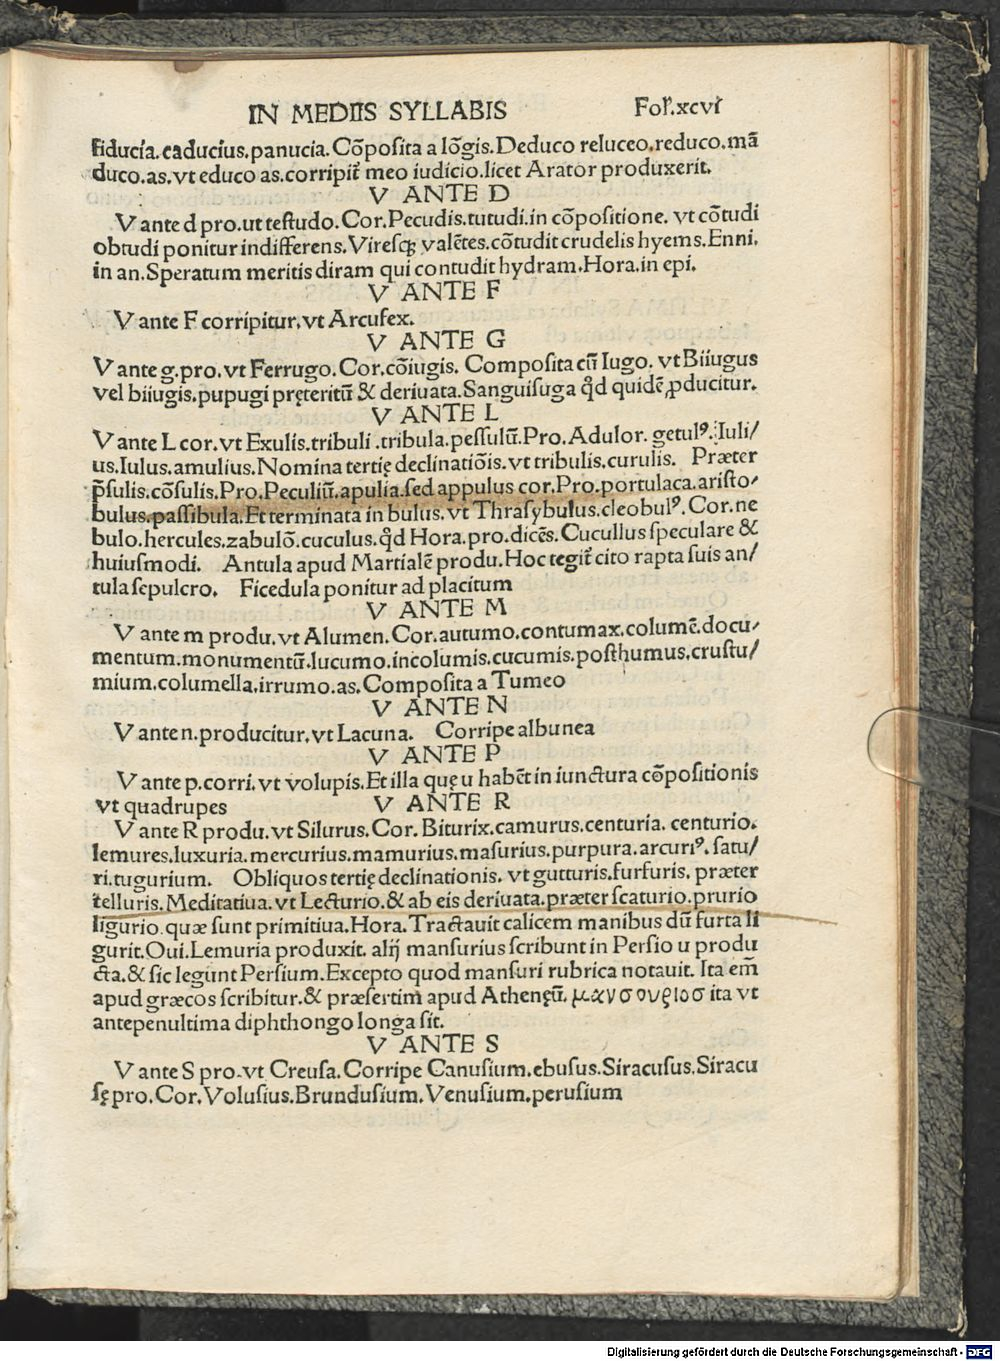 IN MEDIIS SYLLABIS Fol'.xcvi
fiducia.caducius.panucia.Cōposita a lōgis.Deduco reluceo.reduco.mā
duco.as.vt educo as.corripit̄ meo iudicio.licet Arator produxerit.
V ANTE D
V ante d pro.ut testudo.Cor.Pecudis.tutudi.in cōpositione.vt cōtudi
obtudi ponitur indifferens.Viresqꝫ valētes.cōtudit crudelis hyems.Enni.
in an.Speratum meritis diram qui contudit hydram.Hora.in epi.
V ANTE F
V ante F corripitur.vt Arcufex.
V ANTE G
V ante g.pro.vt Ferrugo.Cor.cōiugis. Composita cū Iugo.vt Biiugus
vel biiugis.pupugi pręteritū & deriuata.Sanguisuga qd̄ quidē ꝓducitur.
V ANTE L
V ante L cor.vt Exulis.tribuli.tribula.pessulū.Pro.Adulor.getulꝰ.Iuli/
us.Iulus.amulius.Nomina tertię declinatiōis.vt tribulis.curulis. Præter
p̄sulis.cōsulis.Pro.Peculiū.apulia.sed appulus cor.Pro.portulaca.aristo/
bulus.passibula.Et terminata in bulus.vt Thrasybulus.cleobulꝰ.Cor.ne
bulo.hercules.zabulō.cuculus.qd̄ Hora.pro.dicēs.Cucullus speculare &
huiusmodi. Antula apud Martialē produ.Hoc tegit̄ cito rapta suis an/
tula sepulcro. Ficedula ponitur ad placitum
V ANTE M
V ante m produ.vt Alumen.Cor.autumo.contumax.columē.docu/
mentum.monumentū.lucumo.incolumis.cucumis.posthumus.crustu/
mium.columella.irrumo.as.Composita a Tumeo
V ANTE N
V ante n.producitur.vt Lacuna. Corripe albunea
V ANTE P
V ante p.corri.vt volupis.Et illa quę u habēt in iunctura cōpositionis
vt quadrupes
V ANTE R
V ante R produ.vt Silurus.Cor.Biturix.camurus.centuria.centurio.
lemures.luxuria.mercurius.mamurius.masurius.purpura.arcuriꝰ.satu/
ri.tugurium. Obliquos tertię declinationis.vt gutturis.furfuris.præter
telluris.Meditatiua.vt Lecturio.& ab eis deriuata.præter scaturio.prurio
ligurio.quæ sunt primitiua.Hora.Tractauit calicem manibus dū furta li
gurit.Oui.Lemuria produxit.alij mansurius scribunt in Persio u produ
cta.& sic legunt Persium.Excepto quod mansuri rubrica notauit.Ita em̄
apud græcos scribitur.& præsertim apud Athenęū.μανσουριοσ ita vt
antepenultima diphthongo longa sit.
V ANTE S
V ante S pro.vt Creusa.Corripe Canusium.ebusus.Siracusus.Siracu
sę pro.Cor.Volusius.Brundusium.Venusium.perusium
Digitalisierung gefördert durch die Deutsche Forschungsgemeinschaft - DFG